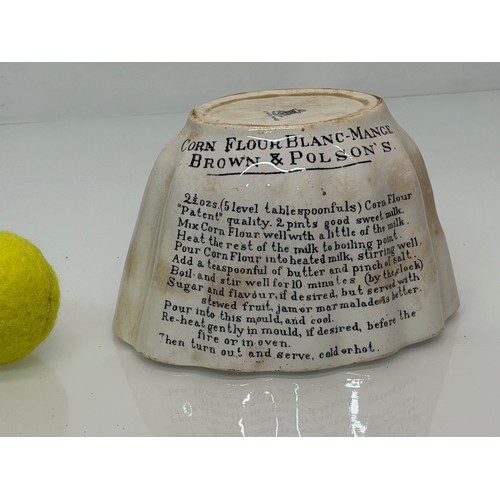 CORN FLOUR BLANC-MANGE
BROWN & POLSON'S.
2½ ozs. (5 level tablespoonfuls) Corn Flour
"Patent" quality. 2 pints good sweet milk.
Mix Corn Flour well with a little of the milk.
Heat the rest of the milk to boiling point.
Pour Corn Flour into heated milk, stirring well.
Add a teaspoonful of butter and pinch of salt.
Boil and stir well for 10 minutes (by the clock)
Sugar and flavour, if desired, but served with
stewed fruit, jam or marmalade is better.
Pour into this mould, and cool.
Re-heat gently in mould, if desired, before the
fire or in oven.
Then turn out and serve, cold or hot.